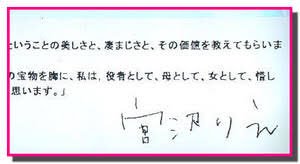 ということの美しさと、凄まじさと、その価値を教えてもらいま
の宝物を胸に、私は，役者として、母として、女として、惜し
思います。」
宮沢りえ